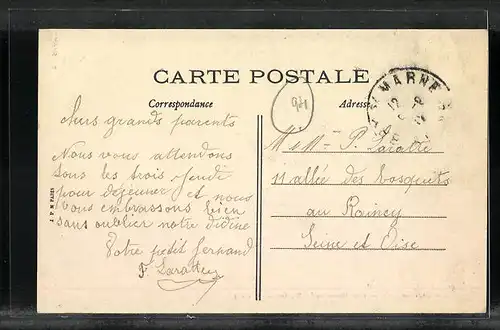 CARTE POSTALE
Correspondance
Adresse
MARNE
94
Mers grands parents
Nous vous attendons
tous les trois jeudi
pour dejeuner et nous
vous embrassons bien
sans oublier notre didine
Votre petit Fernand
F. Laratte
M & Mme P. Laratte
11 allée des bosquets
au Raincy
Seine et Oise
J P M PARIS